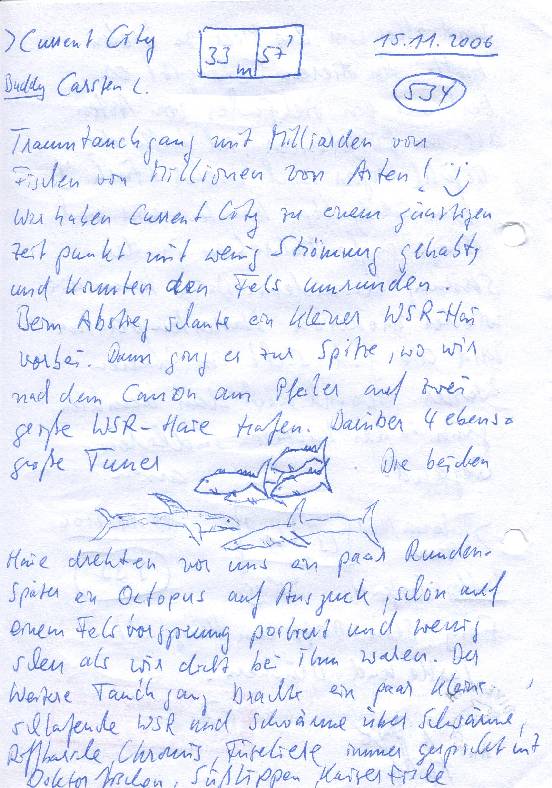 > Current City 33 m 57' 15.11.2006
Buddy Carsten L. 534
Traumtauchgang mit Milliarden von
Fischen von Millionen von Arten! :)
Wir haben Current City zu einem günstigen
Zeitpunkt mit wenig Strömung gehabt,
und konnten den Fels umrunden.
Beim Abstieg schaute ein kleiner WSR-Hai
vorbei. Dann ging es zur Spitze, wo wir
nach dem Canon am Pfeiler auf zwei
große WSR-Haie trafen. Darüber 4 ebenso
große Tuner . Die beiden
Haie drehten vor uns ein paar Runden.
Später ein Octopus auf Ausguck, schön auf
einem Felsvorsprung postiert und wenig
scheu als wir dicht bei ihm waren. Der
weitere Tauchgang brachte ein paar kleine
schlafende WSR und Schwärme über Schwärme,
Riffbarsche, Chromis, Füseliere immer gespickt mit
Doktorfischen, Süßlippen, Kaiserfische